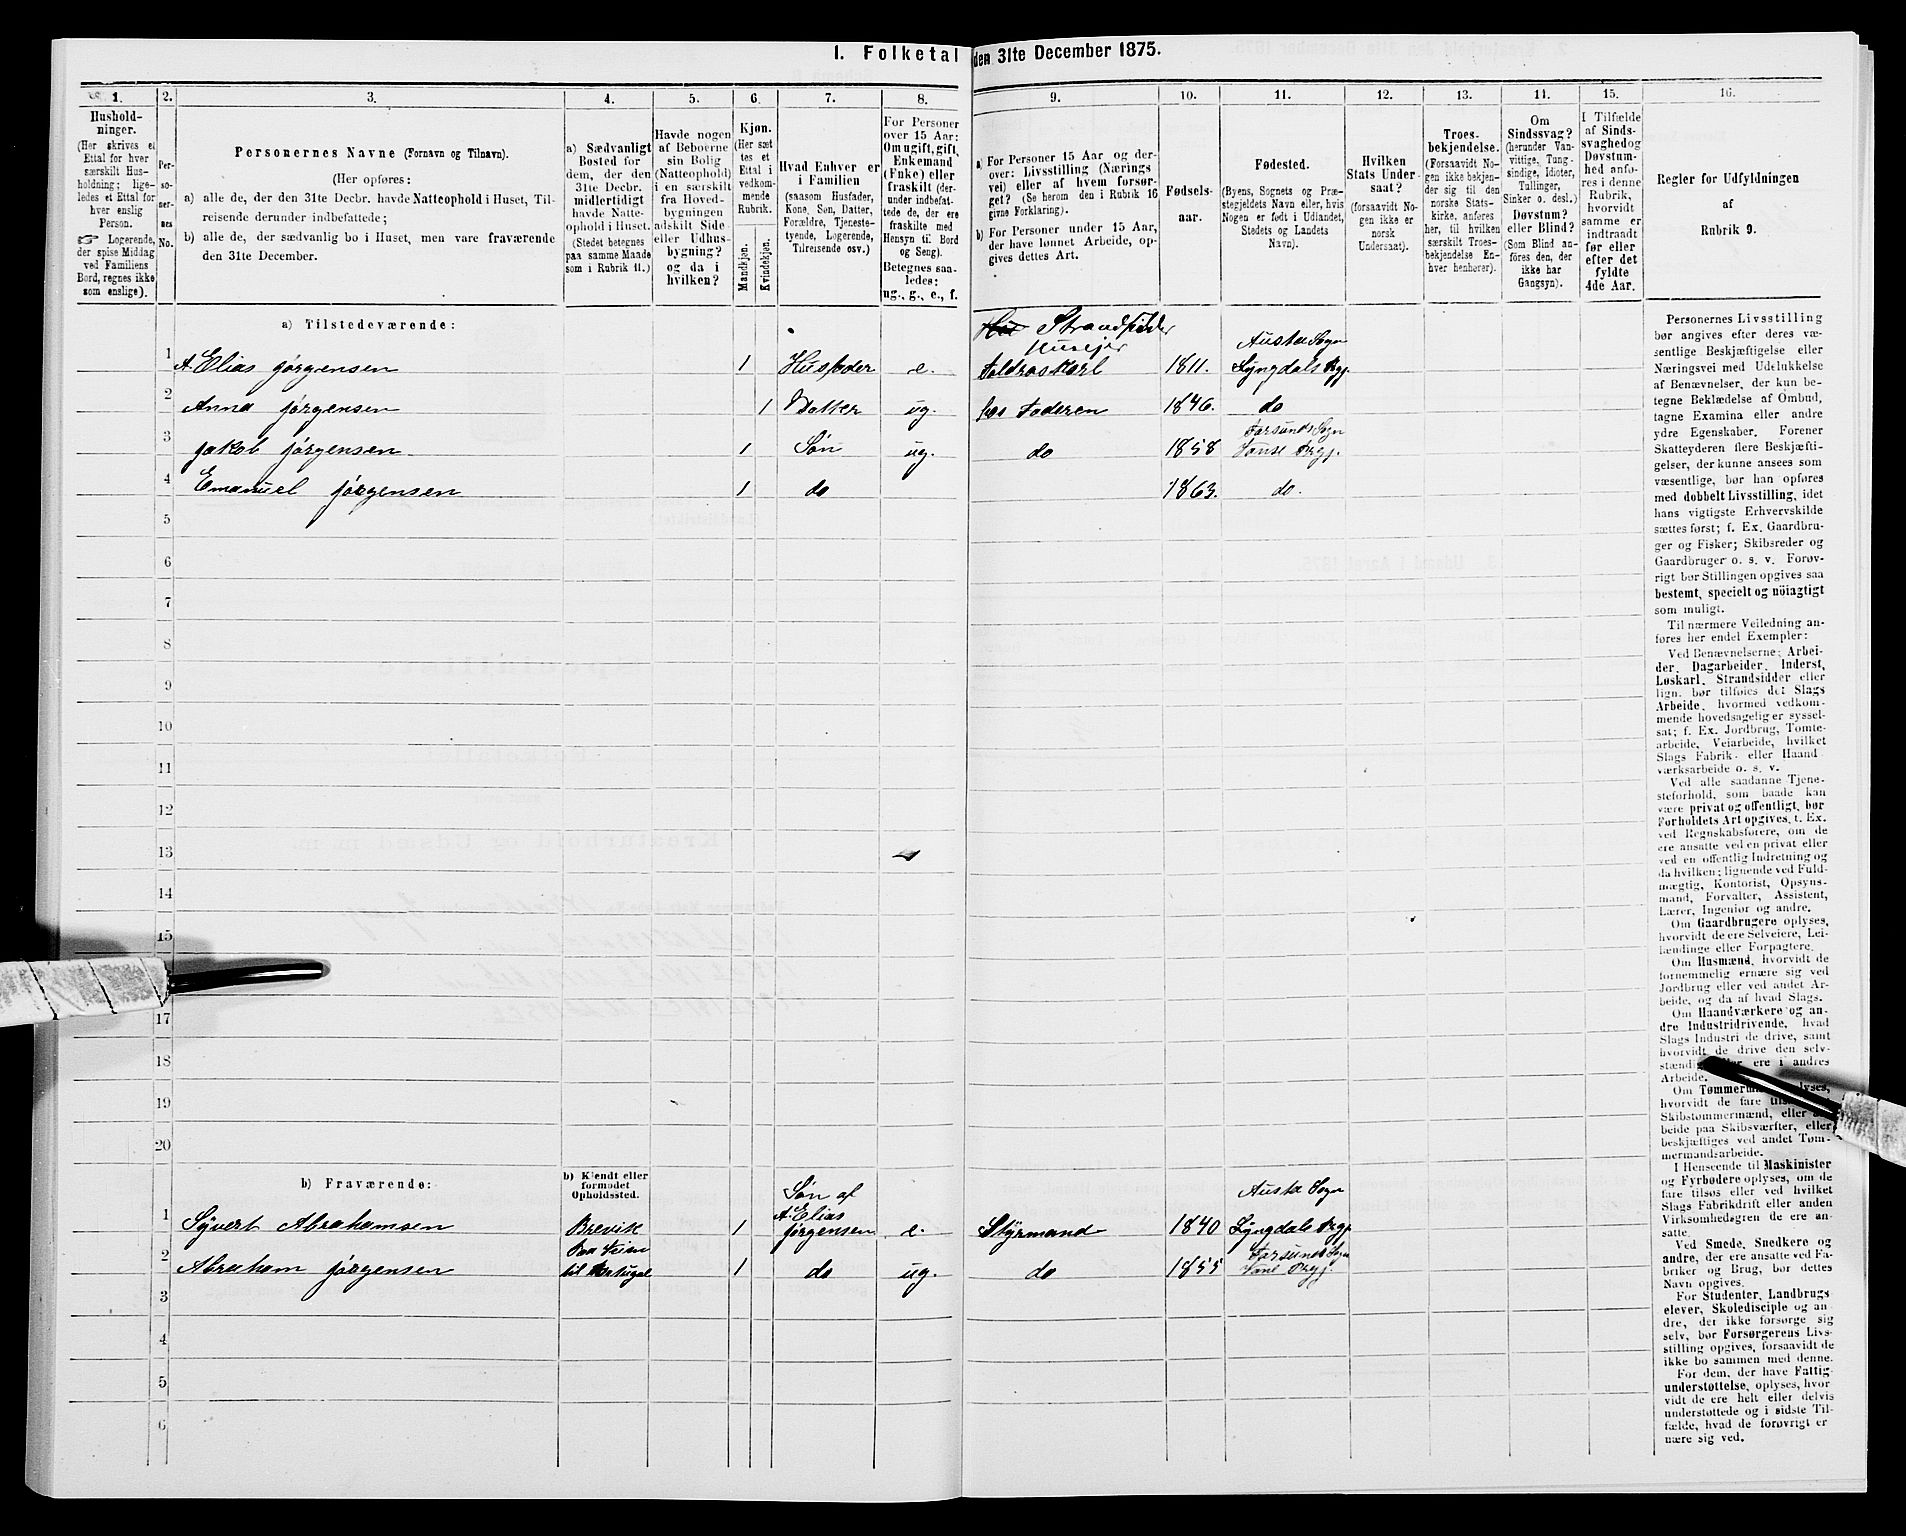 1. Folketal den 31te December 1875.
1.
Hushold-
ninger.
(Her skrives et
Ettal for hver
særskilt Hus-
holdning; lige-
ledes et Ettal for
hver enslig
Person.
☞ Logerende,
der spise Middag
ved Familiens
Bord, regnes ikke
som enslige).
2.
Per-
so-
ner-
nes
No.
3.
Personernes Navne (Fornavn og Tilnavn).
(Her opføres:
a) alle de, der den 31te Decbr. havde Natteophold i Huset, Til-
reisende derunder indbefattede;
b) alle de, der sædvanlig bo i Huset, men vare fraværende
den 31te December.
4.
a) Sædvanligt
Bosted for
dem, der den
31te Decbr.
midlertidigt
havde Natte-
ophold i Huset.
(Stedet betegnes
paa samme Maade
som i Rubrik 11.)
5.
Havde nogen
af Beboerne
sin Bolig
(Natteophold)
i en særskilt
fra Hoved-
bygningen
adskilt Side-
eller Udhus-
bygning?
og da i
hvilken?
6.
Kjøn.
(Her sæt-
tes et
Ettal i
vedkom-
mende
Rubrik.
Mandkjøn.
Kvindekjøn.
7.
Hvad Enhver er
i Familien
(saasom Husfader,
Kone, Søn, Datter,
Forældre, Tjeneste-
tyende, Logerende,
Tilreisende osv.)
8.
For Personer
over 15 Aar:
Om ugift, gift,
Enkemand
(Enke) eller
fraskilt (der-
under indbefat-
tede de, der ere
fraskilte med
Hensyn til Bord
og Seng).
Betegnes saa-
ledes:
ug., g., e., f.
9.
a) For Personer 15 Aar og der-
over: Livsstilling (Nærings-
vei) eller af hvem forsør-
get? (Se herom den i Rubrik 16
givne Forklaring).
b) For Personer under 15 Aar,
der have lønnet Arbeide, op-
gives dettes Art.
10.
Fødsels-
aar.
11.
Fødested.
(Byens, Sognets og Præ-
stegjeldets Navn eller, hvis
Nogen er født i Udlandet,
Stedets og Landets
Navn).
12.
Hvilken
Stats Under-
saat?
(forsaavidt No-
gen ikke er
norsk
Undersaat).
13.
Troes-
bekjendelse.
(Forsaavidt No-
gen ikke bekjen-
der sig til den
norske Stats-
kirke, anføres
her, til hvilken
særskilt Troes-
bekjendelse En-
hver henhører).
14.
Om
Sindssvag?
(herunder Van-
vittige, Tung-
sindige, Idioter,
Tullinger,
Sinker o. desl.)
Døvstum?
eller Blind?
(Som Blind an-
føres den, der
ikke har
Gangsyn).
15.
I Tilfælde
af Sinds-
svaghed og
Døvstum-
hed anføres
i denne
Rubrik,
hvorvidt
samme er
indtraadt
før eller
efter det
fyldte
4de Aar.
16.
Regler for Udfyldningen
af
Rubrik 9.
a) Tilstedeværende:
Strandsidder
Huseier
Austad Sogn
1 A. Elias Jørgensen 1 Husfader e. Føldraskarl 1811. Lyngdals Prgj.
2 Anna Jørgensen 1 Datter ug. fors. Faderen 1846. do
Farsunds Sogn
3 Jakob Jørgensen 1 Søn ug. do 1858 Vanse Prgj.
4 Emanuel Jørgensen 1 do 1863. do.
5
6
7
8
9
10
11
12
13
14
15
17
18
19
20
b) Fraværende:
b) Kjendt eller
formodet
Opholdssted.
Søn af
A. Elias
Austad Sogn
1 Syvert Abrahamsen Brevik 1 Jørgensen e. Styrmand 1840 Lyngdals Prgj
Paa Reise
Farsunds Sogn
2 Abraham Jørgensen til Portugal 1 do ug. do 1855 Vanse Prgj.
3
4
5
6
Personernes Livsstilling
bør angives efter deres væ-
sentlige Beskjæftigelse eller
Næringsvei med Udelukkelse
af Benævnelser, der kun be-
tegne Beklædelse af Ombud,
tagne Examina eller andre
ydre Egenskaber. Forener
Skatteyderen flere Beskjæfti-
gelser, der kunne ansees som
væsentlige, bør han opføres
med dobbelt Livsstilling, idet
hans vigtigste Erhvervskilde
sættes først; f. Ex. Gaardbru-
ger og Fisker; Skibsreder og
Gaardbruger o. s. v. Forøv-
rigt bør Stillingen opgives saa
bestemt, specielt og nöiagtigt
som muligt.
Til nærmere Veiledning an-
føres her endel Exempler:
Ved Benævnelserne: Arbei-
der, Dagarbeider, Inderst,
Løskarl, Strandsidder eller
lign. bør tilføies det Slags
Arbeide, hvormed vedkom-
mende hovedsagelig er syssel-
sat; f. Ex. Jordbrug, Tomte-
arbeide, Veiarbeide, hvilket
Slags Fabrik- eller Haand-
værksarbeide o. s. v.
Ved alle saadanne Tjene-
steforhold, som baade kan
være privat og offentligt, bør
Forholdets Art opgives, t. Ex.
ved Regnskabsførere, om de
ere ansatte ved en privat eller
ved en offentlig Indretning og
da hvilken; lignende ved Fuld-
mægtig, Kontorist, Opsyns-
mand, Forvalter, Assistent,
Lærer, Ingeniør og andre.
Om Gaardbrugere oplyses,
hvorvidt de ere Selveiere, Lei-
lændinge eller Forpagtere.
Om Husmænd, hvorvidt de
fornemmelig ernære sig ved
Jordbrug eller ved andet Ar-
beide, og da af hvad Slags.
Om Haandværkere og an-
dre Industridrivende, hvad
Slags Industri de drive, samt
hvorvidt de drive den selv-
stændig eller ere i andres
Arbeide.
Om Tømmermænd oplyses,
hvorvidt de fare tilsøs som
Skibstømmermænd, eller ar-
beide paa Skibsværfter, eller
beskjæftiges ved andet Tøm-
mermandsarbeide.
I Henseende til Maskinister
og Fyrbødere oplyses, om de
fare tilsøs eller ved hvilket
Slags Fabrikdrift eller anden
Virksomhedsgren de ere an-
satte.
Ved Smede, Snedkere og
andre, der ere ansatte ved Fa-
briker og Brug, bør dettes
Navn opgives.
For Studenter, Landbrugs-
elever, Skoledisciple og an-
dre, der ikke forsørge sig
selv, bør Forsørgerens Livs-
stilling opgives, forsaavidt de
ikke bo sammen med denne.
For dem, der have Fattig-
understøttelse, oplyses, hvor-
vidt de ere helt eller delvis
understøttede og i sidste Til-
fælde, hvad de forøvrigt er-
nære sig ved.